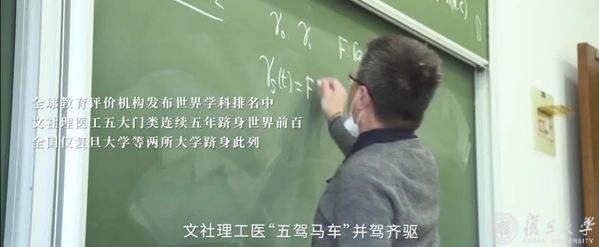 γ₀ γ₁
γₛ(t) = F
全球教育评价机构发布世界学科排名中
文社理医工五大门类连续五年跻身世界前百
全国仅复旦大学等两所大学跻身此列
文社理工医“五驾马车”并驾齐驱
復旦大學
FUDAN UNIVERSITY